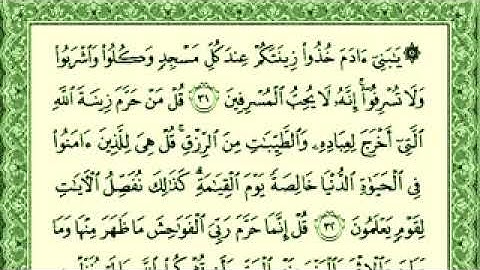 ۞ يَٰبَنِىٓ ءَادَمَ خُذُوا۟ زِينَتَكُمْ عِندَ كُلِّ مَسْجِدٍ وَكُلُوا۟ وَٱشْرَبُوا۟
وَلَا تُسْرِفُوٓا۟ ۚ إِنَّهُۥ لَا يُحِبُّ ٱلْمُسْرِفِينَ ٣١ قُلْ مَنْ حَرَّمَ زِينَةَ ٱللَّهِ
ٱلَّتِىٓ أَخْرَجَ لِعِبَادِهِۦ وَٱلطَّيِّبَٰتِ مِنَ ٱلرِّزْقِ ۚ قُلْ هِىَ لِلَّذِينَ ءَامَنُوا۟
فِى ٱلْحَيَوٰةِ ٱلدُّنْيَا خَالِصَةً يَوْمَ ٱلْقِيَٰمَةِ ۗ كَذَٰلِكَ نُفَصِّلُ ٱلْءَايَٰتِ
لِقَوْمٍ يَعْلَمُونَ ٣٢ قُلْ إِنَّمَا حَرَّمَ رَبِّىَ ٱلْفَوَٰحِشَ مَا ظَهَرَ مِنْهَا وَمَا